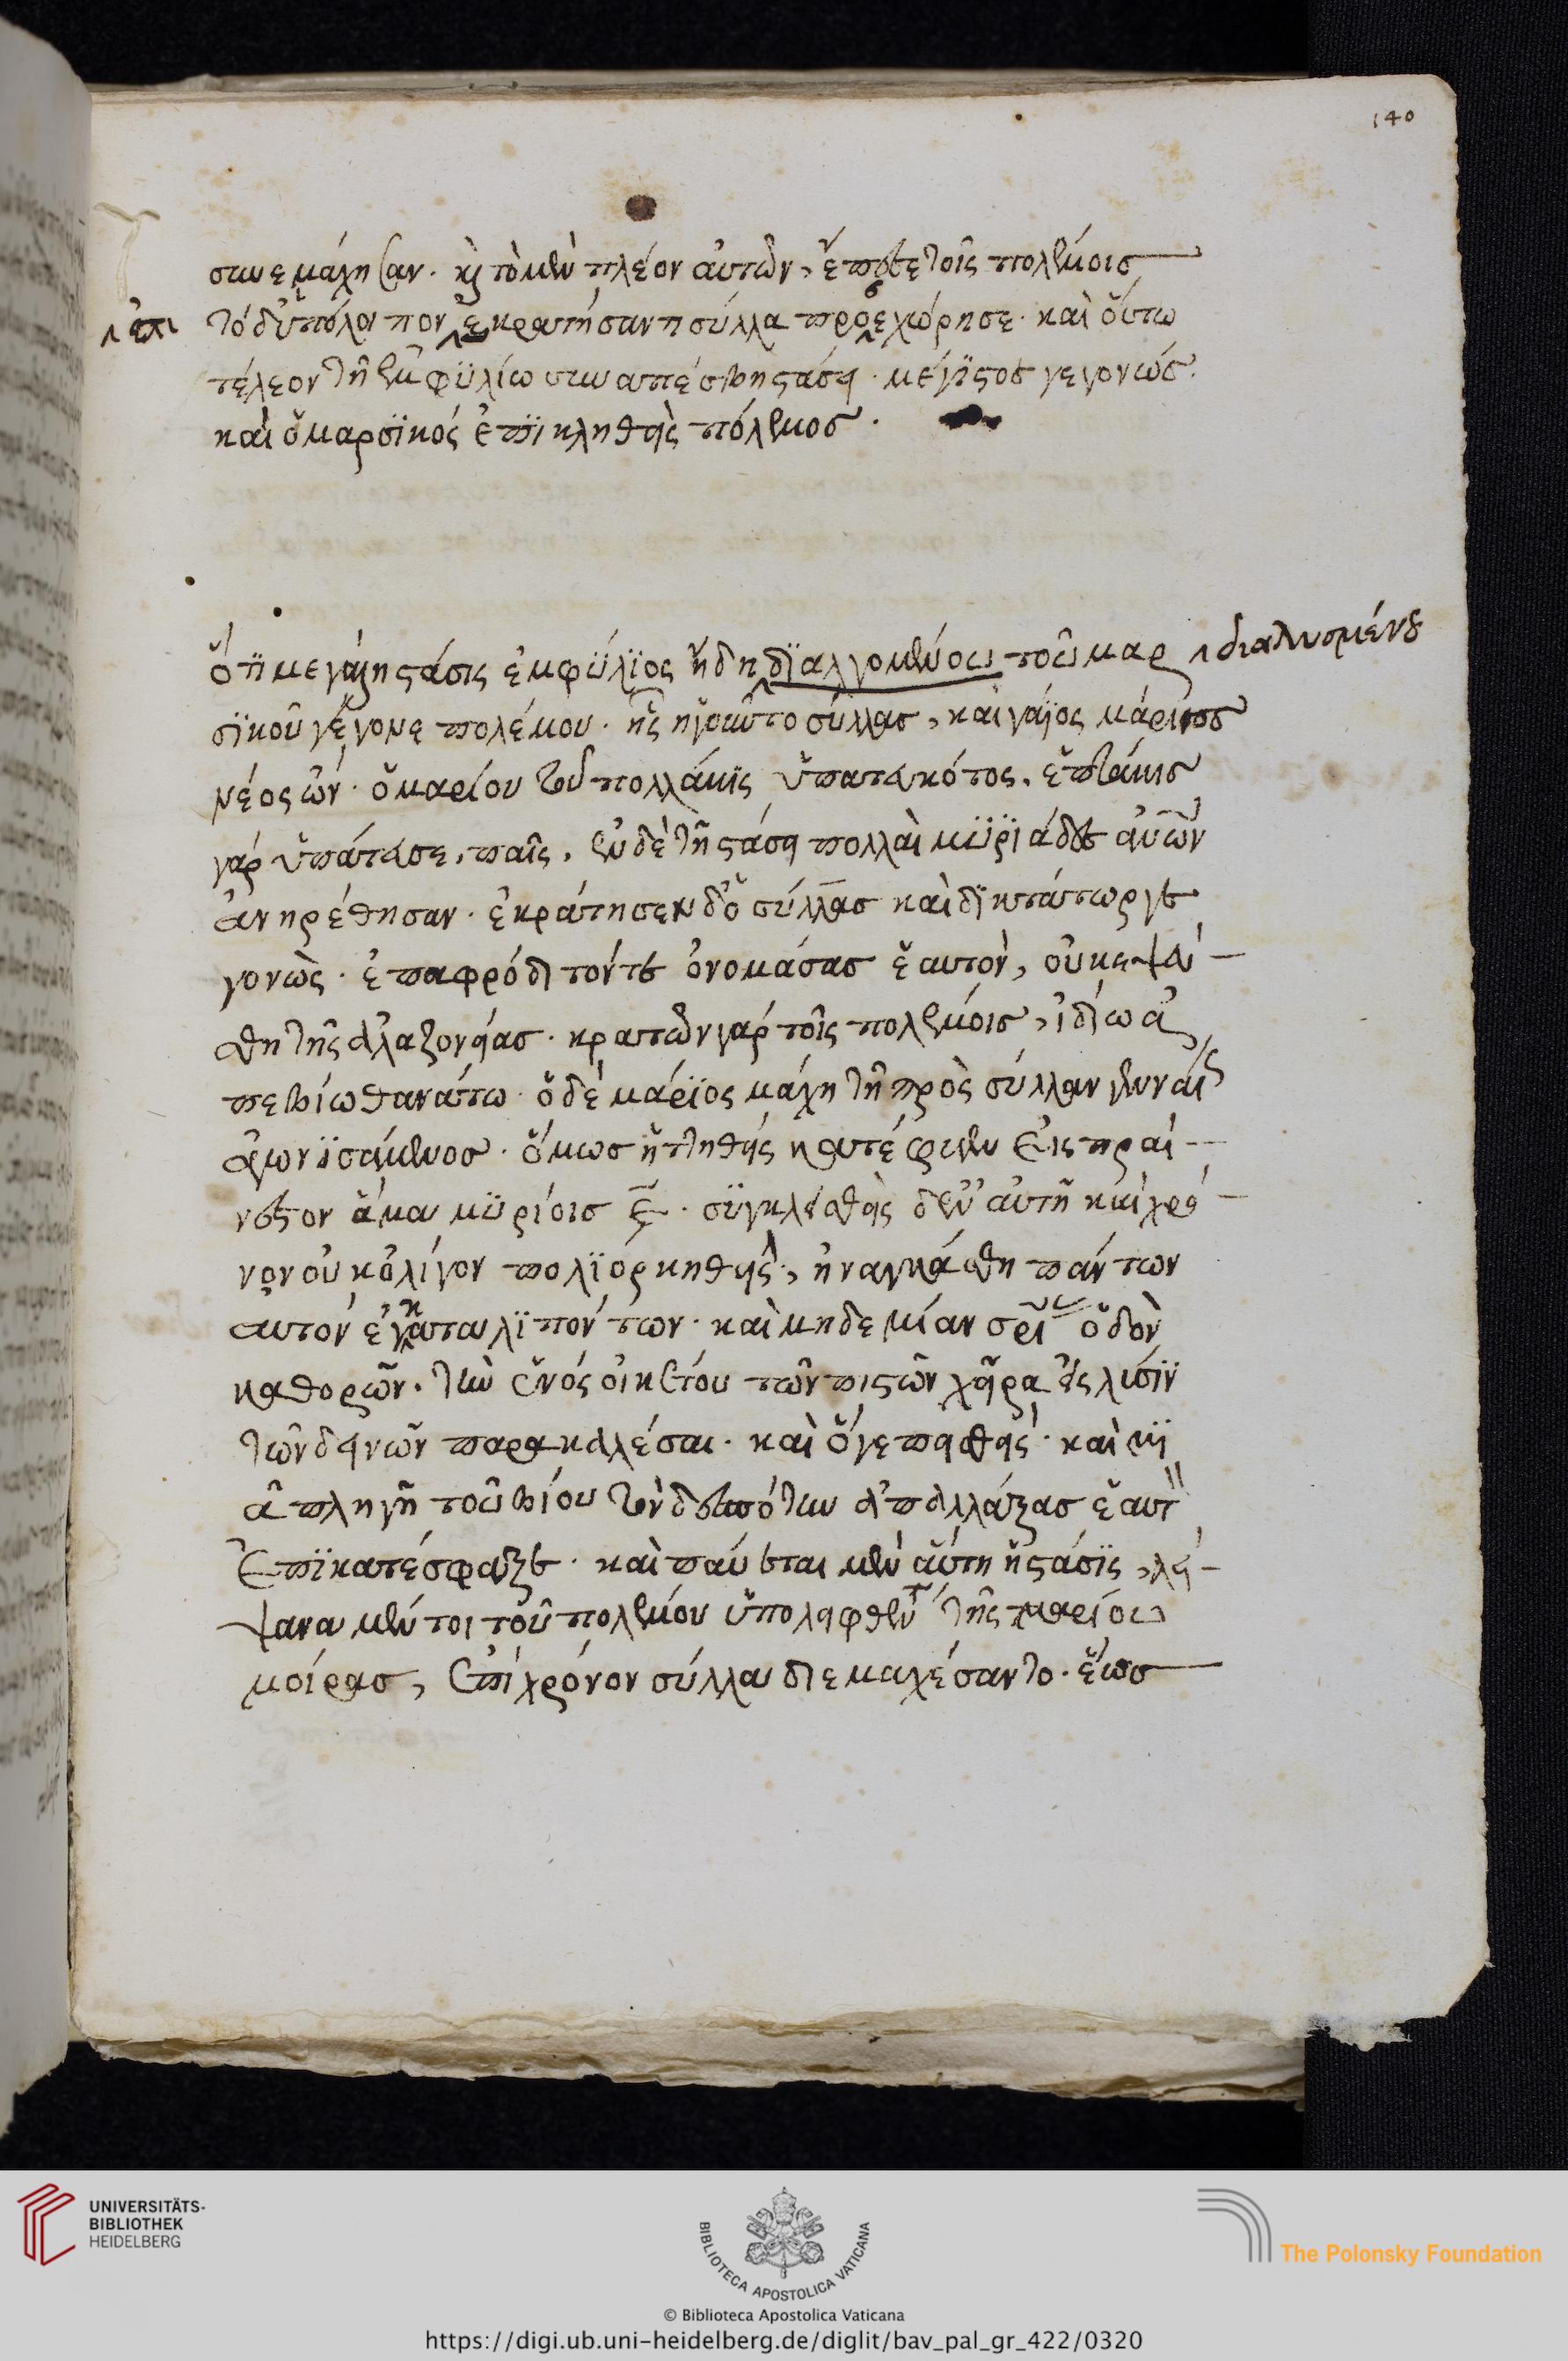 140
συνεμάχησαν. καὶ τὸ μὲν πλέον αὐτῶν, ἔπεσε τοῖς πολέμοις
ἐπι
τὸ δ' ὑπόλοιπον ἐκρατήσαντι σύλλα προσεχώρησε. καὶ οὕτω
τέλεον τῆ ἐμφϋλίω συναπέσβη στάσει. μέγιστος γεγονώς.
καὶ ὁ μαρσϊκός ἐπϊκληθεὶς πόλεμος.
ὅτϊ μεγάλη στάσις ἐμφύλϊος ἤδη δϊαλγομένου τοῦ μαρ διαλυσμένου
σϊκοῦ γέγονε πολέμου. ἧς ἡγοῦντο σύλλας, καὶ γάϊος μάριος
νέος ὤν. ὁ μαρίου τοῦ πολλάκις ὑπατευκότος. ἑπτάκις
γάρ ὑπάτευσε, παῖς. ἐν δὲ τῆ στάσει πολλαὶ μϋρϊάδες αὐτῶν
ἀνηρέθησαν. ἐκράτησεν δ' ὁ σύλλας καὶ δϊκτάτωρ γε
γονὼς. ἐπαφρόδιτόν τε ὀνομάσας ἑαυτὸν, οὐκ ἐψεύ
σθη τῆς ἀλαζονείας. κρατῶν γάρ τοῖς πολέμοις, ἰδίω ἀ
πεβίω θανάτω. ὁ δὲ μάρϊος μάχη τῆ πρὸς σύλλαν γενναίως
ἀγωνϊσάμενος. ὅμως ἡττηθείς κατέφυγεν εἰς πραί
νεστον ἅμα μϋρίοις ͵ε. συγκλεισθεὶς δ' ἐν αὐτῆ καὶ χρό
νον οὐκ ὀλίγον πολϊορκηθείς, ἠναγκάσθη πάντων
αυτόν ἐγκαταλϊπόντων. καὶ μηδεμίαν σρίας ὁδὸν
καθορῶν. τὴν ἑνός οἰκέτου τῶν πιστῶν χεῖρα εἰς λύσϊν
τῶν δεινῶν παρακαλέσαι. καὶ ὅγε πεισθείς. καὶ μϊ
ᾶ πληγῆ τοῦ βίου τὸν δεσπότην ἀπαλλάξας ἑαυτὸν
ἐπϊκατέσφαξε. καὶ παύεται μὲν αὕτη ἡ στάσϊς, λεί
ψανα μέντοι τοῦ πολέμου ὑπολειφθέντα τῆς μαρίου
μοίρας, ἐπὶ χρόνον σύλλα διεμαχέσαντο. ἕως
UNIVERSITÄTS-
BIBLIOTHEK
HEIDELBERG
BIBLIOTECA APOSTOLICA VATICANA
The Polonsky Foundation
© Biblioteca Apostolica Vaticana
https://digi.ub.uni-heidelberg.de/diglit/bav_pal_gr_422/0320